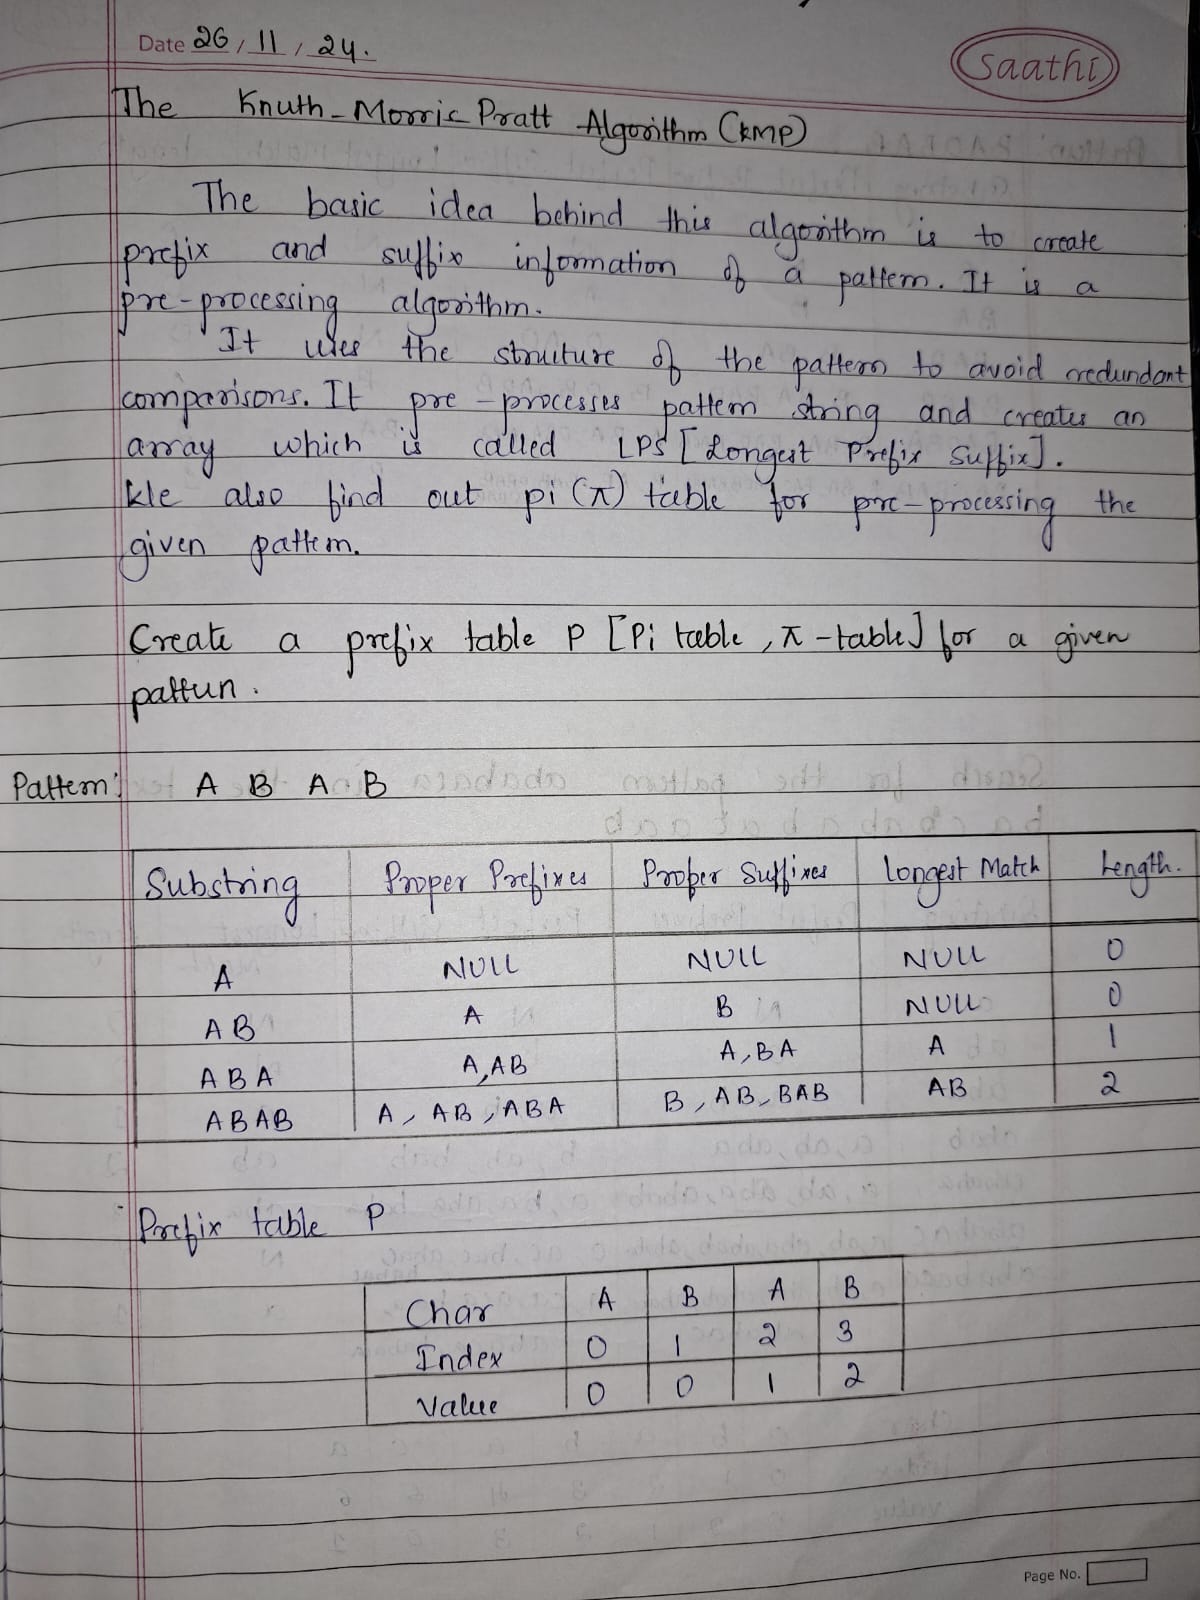 Date 26/11/24.
Saathi
The Knuth-Morris Pratt Algorithm (KMP)
The basic idea behind this algorithm is to create
prefix and suffix information of a pattern. It is a
pre-processing algorithm.
It uses the structure of the pattern to avoid redundant
comparisons. It pre-processes pattern string and creates an
array which is called LPS [Longest Prefix Suffix].
We also find out pi (π) table for pre-processing the
given pattern.
Create a prefix table P [Pi table, π-table] for a given
pattern.
Pattern: A B A B
Substring Proper Prefixes Proper Suffixes Longest Match Length.
A NULL NULL NULL 0
AB A B NULL 0
ABA A,AB A,BA A 1
ABAB A, AB, ABA B, AB, BAB AB 2
Prefix table P
Char A B A B
Index 0 1 2 3
Value 0 0 1 2
Page No.